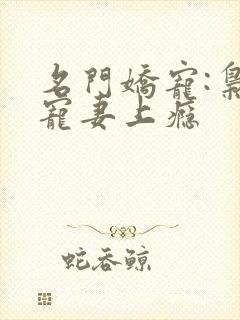 名門嬌寵:梟
寵妻上癮
蛇吞鲸